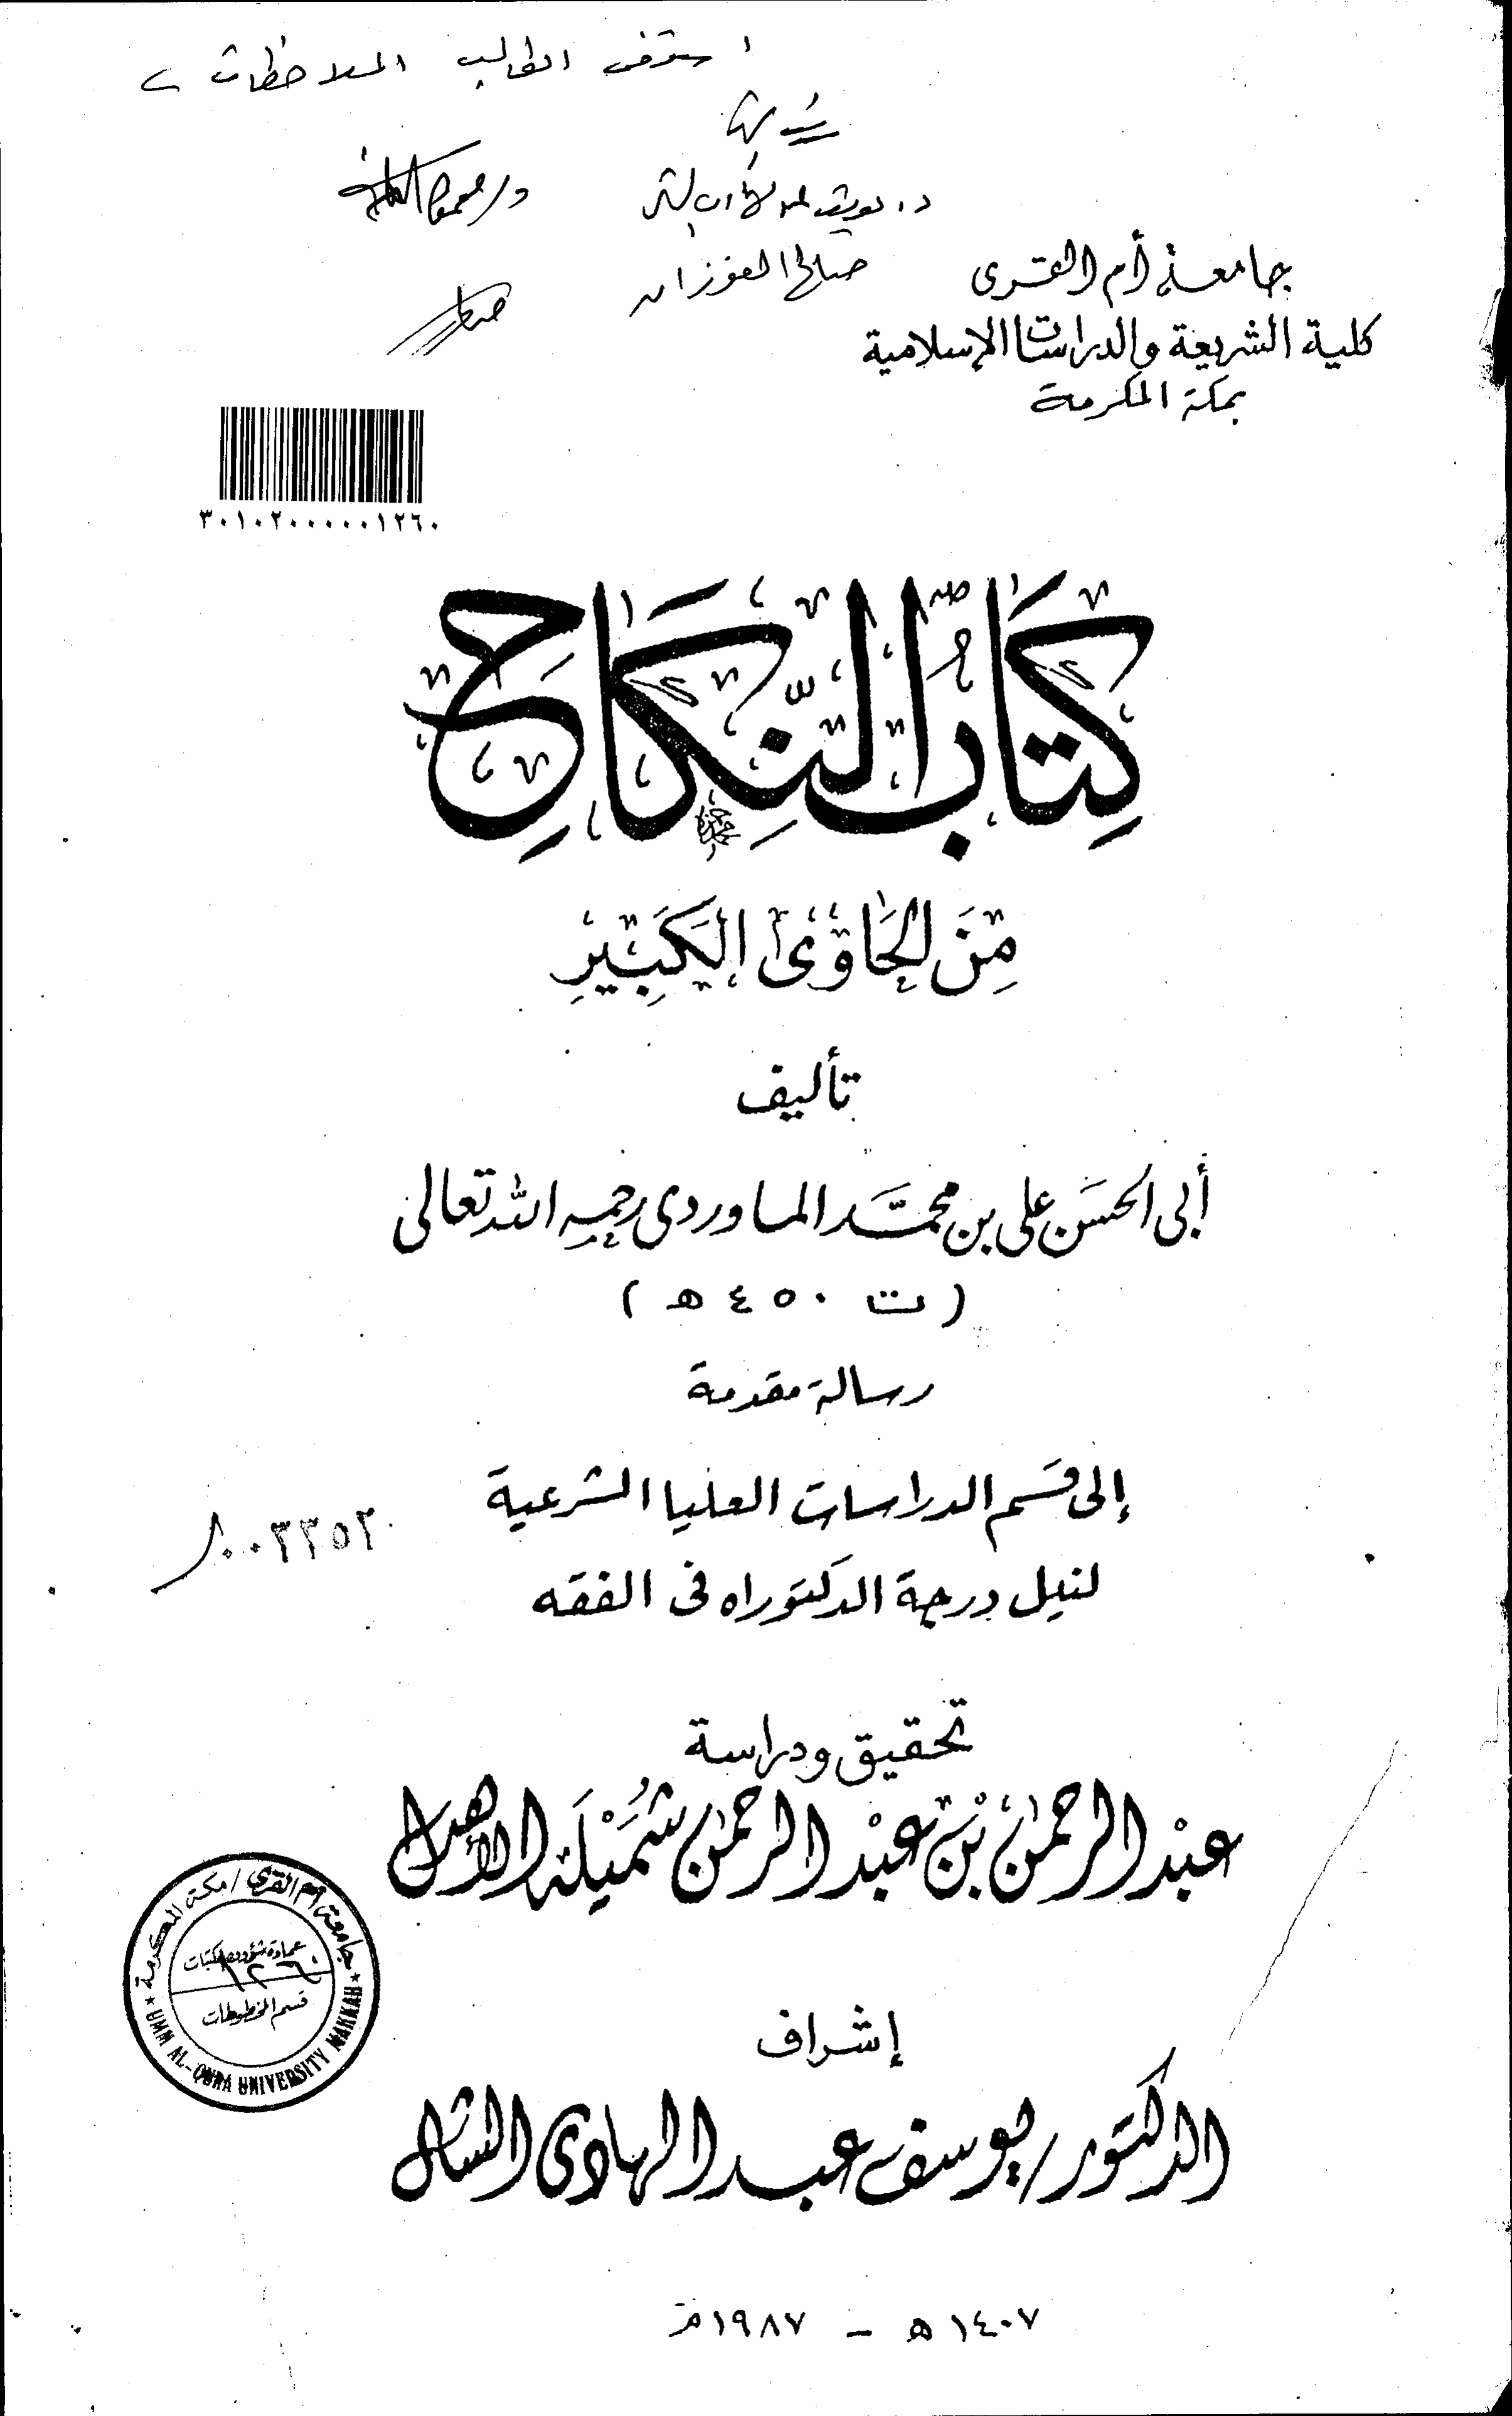 استوفى الطالب الملاحظات
صالح الفوزان
جامعة أم القرى
كلية الشريعة والدراسات الإسلامية
بمكة المكرمة
٣٠١٠٢٠٠٠٠٠١٢٦٠
كِتَابُ النِّكَاحِ
مِنَ الحَاوْى الكَبِيْرِ
تأليف
أبى الحسَن على بن محمَّد الماوردى رحمه الله تعالى
(ت ٤٥٠ ه)
رسالة مقدمة
إلى قسم الدراسات العليا الشرعية
٠٠٣٣٥٢
لنيل درجة الدكتوراه فى الفقه
تحقيق ودراسة
عبْد الرحمن بْن عبْد الرحمن شُمَيْلَة الاهدل
جامعة أم القرى / مكة المكرمة
عمادة شؤون المكتبات
١٢٦٠
قسم المخطوطات
UMM AL-QURA UNIVERSITY MAKKAH
إشراف
الدكتور/ يوسف عبد الهادى الشال
١٤٠٧ ه - ١٩٨٧م